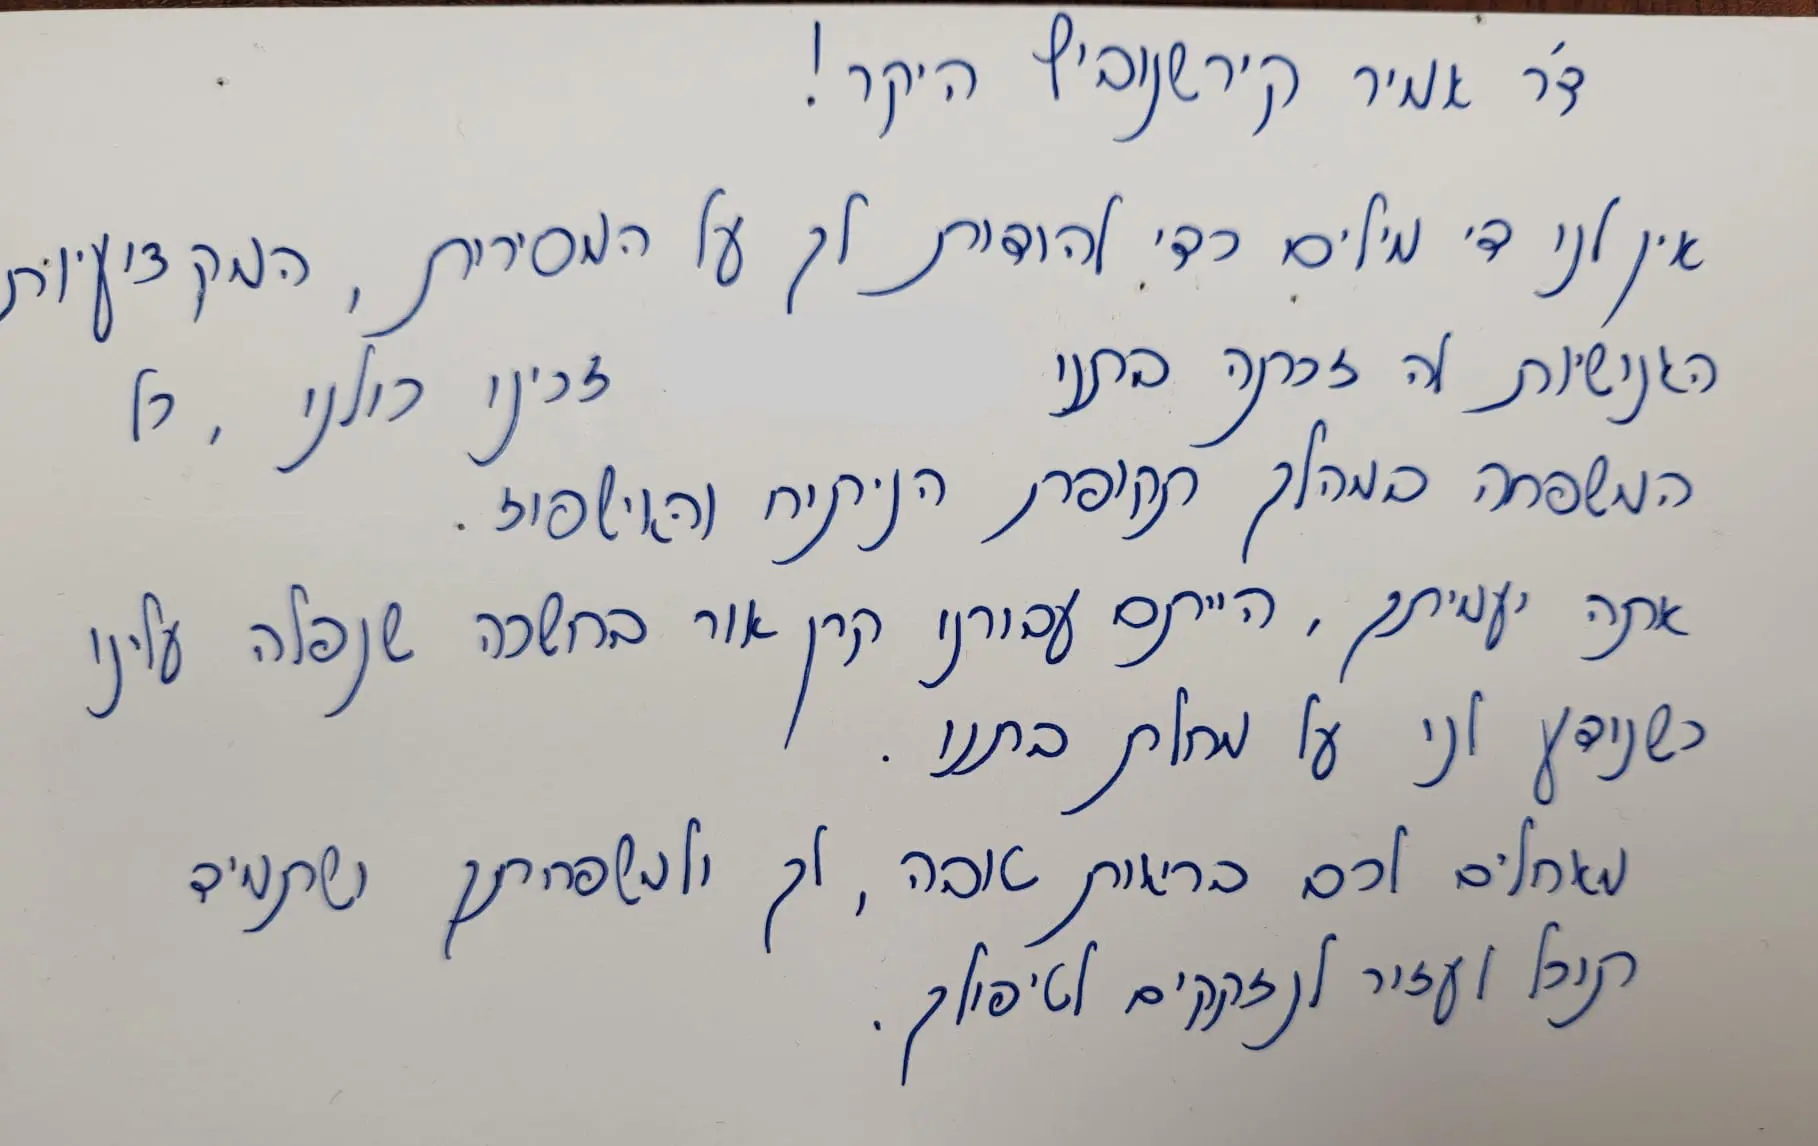 ד"ר אמיר קירשנוביץ היקר!
אין לנו די מילים כדי להודות לך על המסירות, המקצועיות
האנושיות לה זכתה בתנו זכינו כולנו, כל
המשפחה במהלך תקופת הניתוח והאישפוז.
אתה ועמיתך, הייתם עבורנו קרן אור בחשכה שנפלה עלינו
כשנודע לנו על מחלת בתנו.
מאחלים לכם בריאות טובה, לך ולמשפחתך ושתמיד
תוכל לעזור לנזקקים לטיפולך.